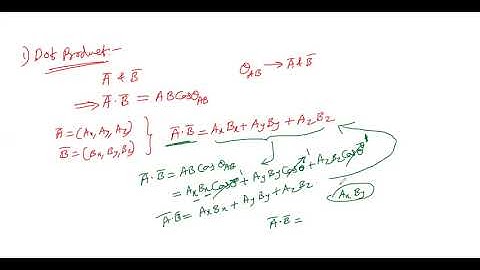 1) Dot Product -
A̅ & B̅
θ_AB → A̅ & B̅
⇒ A̅·B̅ = AB cosθ_AB
A̅ = (Ax, Ay, Az)
B̅ = (Bx, By, Bz)
A̅·B̅ = AxBx + AyBy + AzBz
A̅·B̅ = AB cosθ_AB
= AxBx cosθ 1 + AyBy cosθ 1 + AzBz cosθ 1
A̅·B̅ = AxBx + AyBy + AzBz
AxBy
A̅·B̅ =